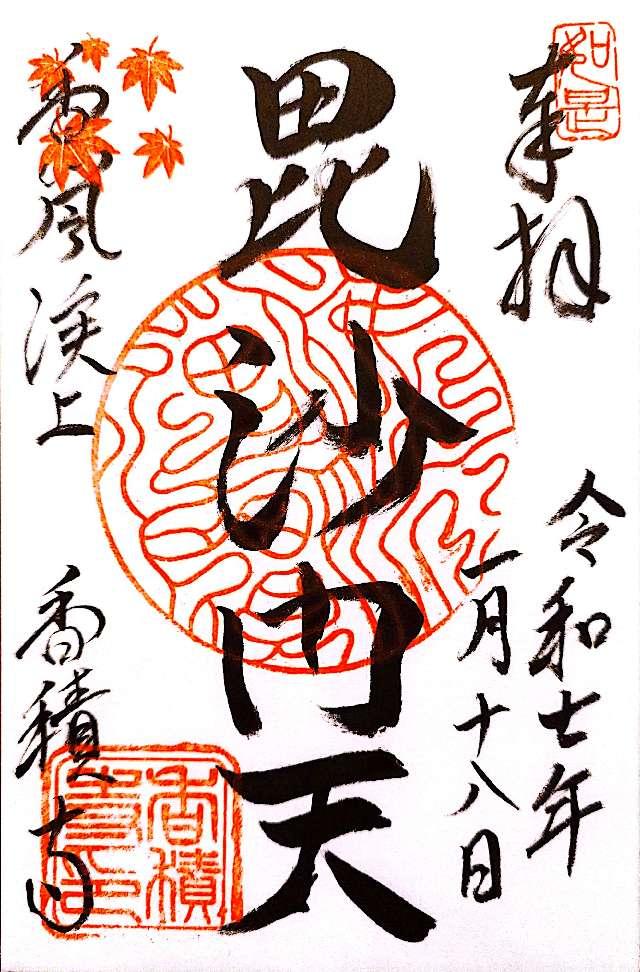 奉拝
如是
令和七年
一月十八日
毘沙門天
香嵐渓上
香積寺
香積